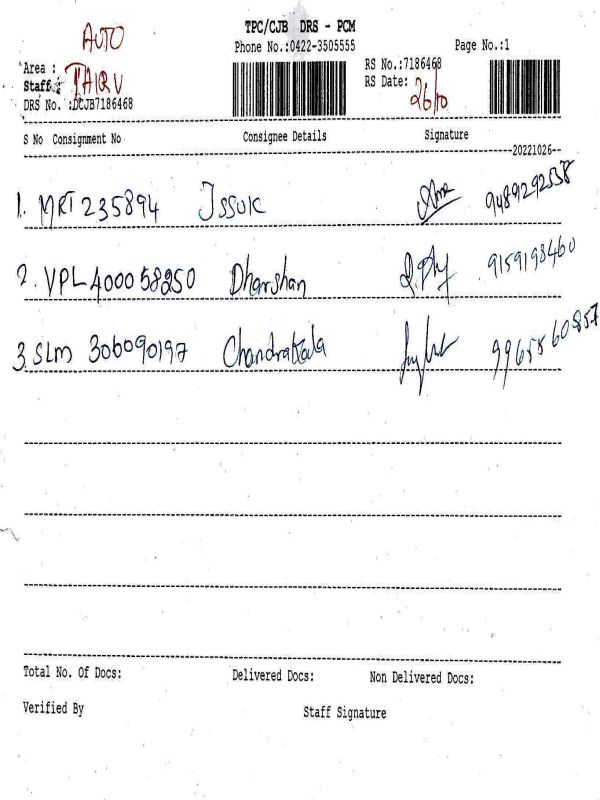 TPC/CJB DRS - PCM
AUTO
Phone No.:0422-3505555 Page No.:1
Area : RS No.:7186468
Staff: RS Date: 26/10
DRS No. :DCJB7186468
S No Consignment No Consignee Details Signature
20221026
1. MRT 235894 Issuk 9489292538
2. VPL 400058250 Dharshan 9159198460
3. SLM 306090197 Chandrakala 9965860857
Total No. Of Docs: Delivered Docs: Non Delivered Docs:
Verified By Staff Signature